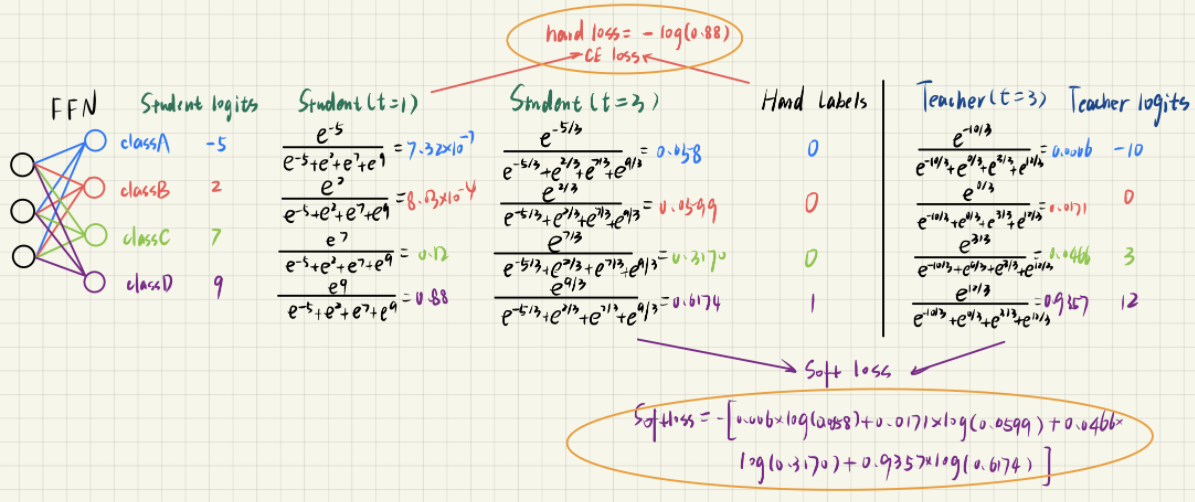 hard loss = - log(0.88)
CE loss
FFN Student logits Student(t=1) Student(t=3) Hard labels Teacher(t=3) Teacher logits
classA -5 e^-5/(e^-5+e^2+e^7+e^9) = 7.32×10^-7 e^-5/3/(e^-5/3+e^2/3+e^7/3+e^9/3) = 0.058 0 e^-10/3/(e^-10/3+e^0/3+e^3/3+e^12/3) = 0.0006 -10
classB 2 e^2/(e^-5+e^2+e^7+e^9) = 8.03×10^-4 e^2/3/(e^-5/3+e^2/3+e^7/3+e^9/3) = 0.0599 0 e^0/3/(e^-10/3+e^0/3+e^3/3+e^12/3) = 0.0171 0
classC 7 e^7/(e^-5+e^2+e^7+e^9) = 0.12 e^7/3/(e^-5/3+e^2/3+e^7/3+e^9/3) = 0.3170 0 e^3/3/(e^-10/3+e^0/3+e^3/3+e^12/3) = 0.0466 3
classD 9 e^9/(e^-5+e^2+e^7+e^9) = 0.88 e^9/3/(e^-5/3+e^2/3+e^7/3+e^9/3) = 0.6174 1 e^12/3/(e^-10/3+e^0/3+e^3/3+e^12/3) = 0.9357 12
Soft loss
Softloss = -[0.006×log(0.058)+0.0171×log(0.0599)+0.0466×
log(0.3170)+0.9357×log(0.6174)]